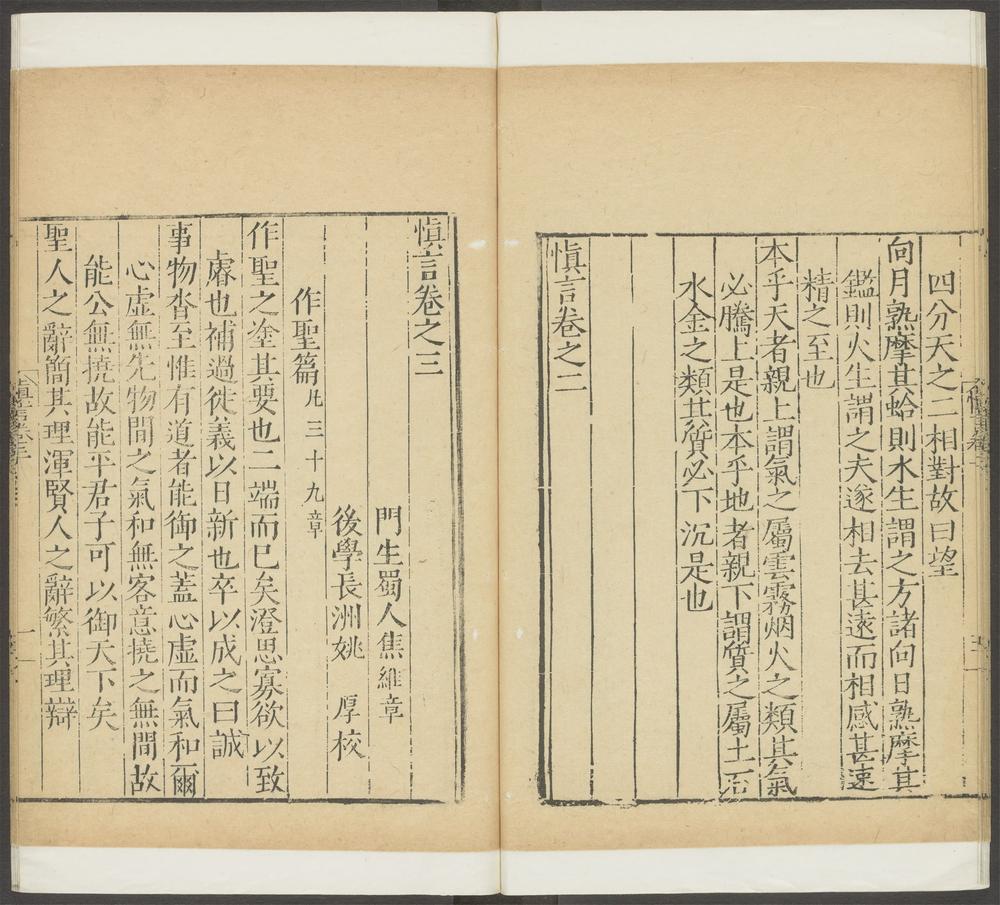 四分天之二相對故曰望
向月熟摩其蛤則水生謂之方諸向日熟摩其
鑑則火生謂之夫遂相去甚遠而相感甚速
精之至也
本乎天者親上謂氣之屬雲霧烟火之類其氣
必騰上是也本乎地者親下謂質之屬土石
水金之類其質必下沉是也
慎言卷之二
慎言卷之三
門生蜀人焦維章
後學長洲姚 厚校
作聖篇凡三十九章
作聖之塗其要也二端而已矣澄思寡欲以致
睿也補過徙義以日新也卒以成之曰誠
事物沓至惟有道者能御之蓋心虛而氣和爾
心虛無先物間之氣和無客意撓之無間故
能公無撓故能平君子可以御天下矣
聖人之辭簡其理渾賢人之辭繁其理辯